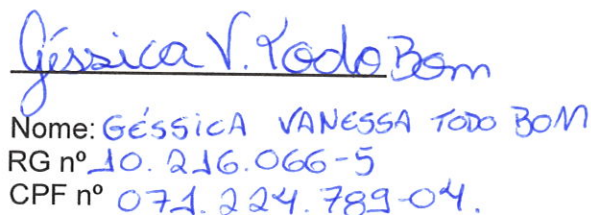 Géssica V. Todo Bom
Nome: GÉSSICA VANESSA TODO BOM
RG nº 10.216.066-5
CPF nº 071.224.789-04.